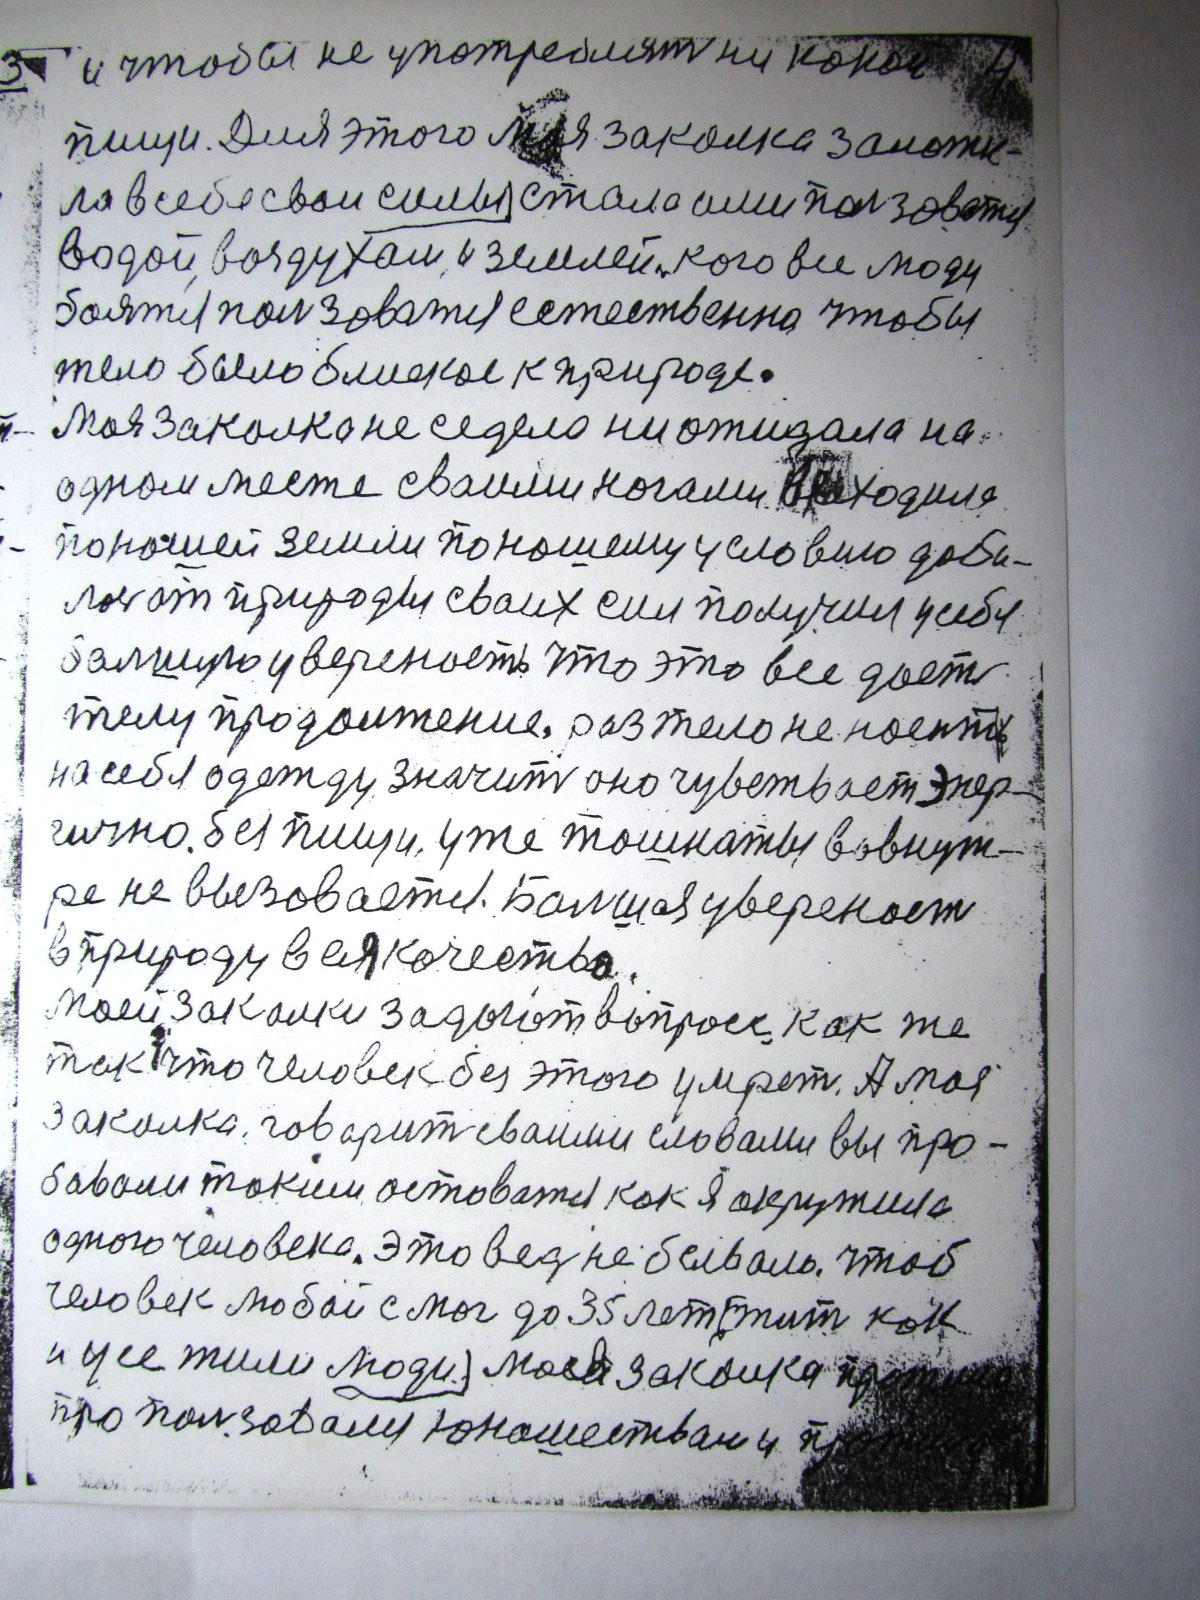 3 и чтобы не употреблят ни какой 4
пищи. Для этого моя закалка заложи-
ла в себе свои силы, стала ими ползоватся
водой, воздухам, и землей, кого все люди
боятся ползоватся естественна чтобы
тело было блиское к природе.
Моя закалка не седела ни ожидала на
одном месте сваими ногами выходила
по нашей земли по нашему условию доби-
лас от природы сваих сил получил у себя
балшую увереность что это все дает
телу продолжение. раз тело не носит
на себя одежду, значит оно чувствает энер-
гично. без пищи, уже тошнаты вовнут-
ре не вызовается. Балшая увереност
в природу в ея качества.
Моей закалки задают вопросс, как же
так что человек без этого умрет. А моя
закалка, говарит сваими словами вы про-
бавали таким астоватся как я акружила
одного человека. Это вед не бывало. чтоб
человек любой смог до 35 лет жит как
и усе жили люди, моя закалка
про ползовалися юношествам и